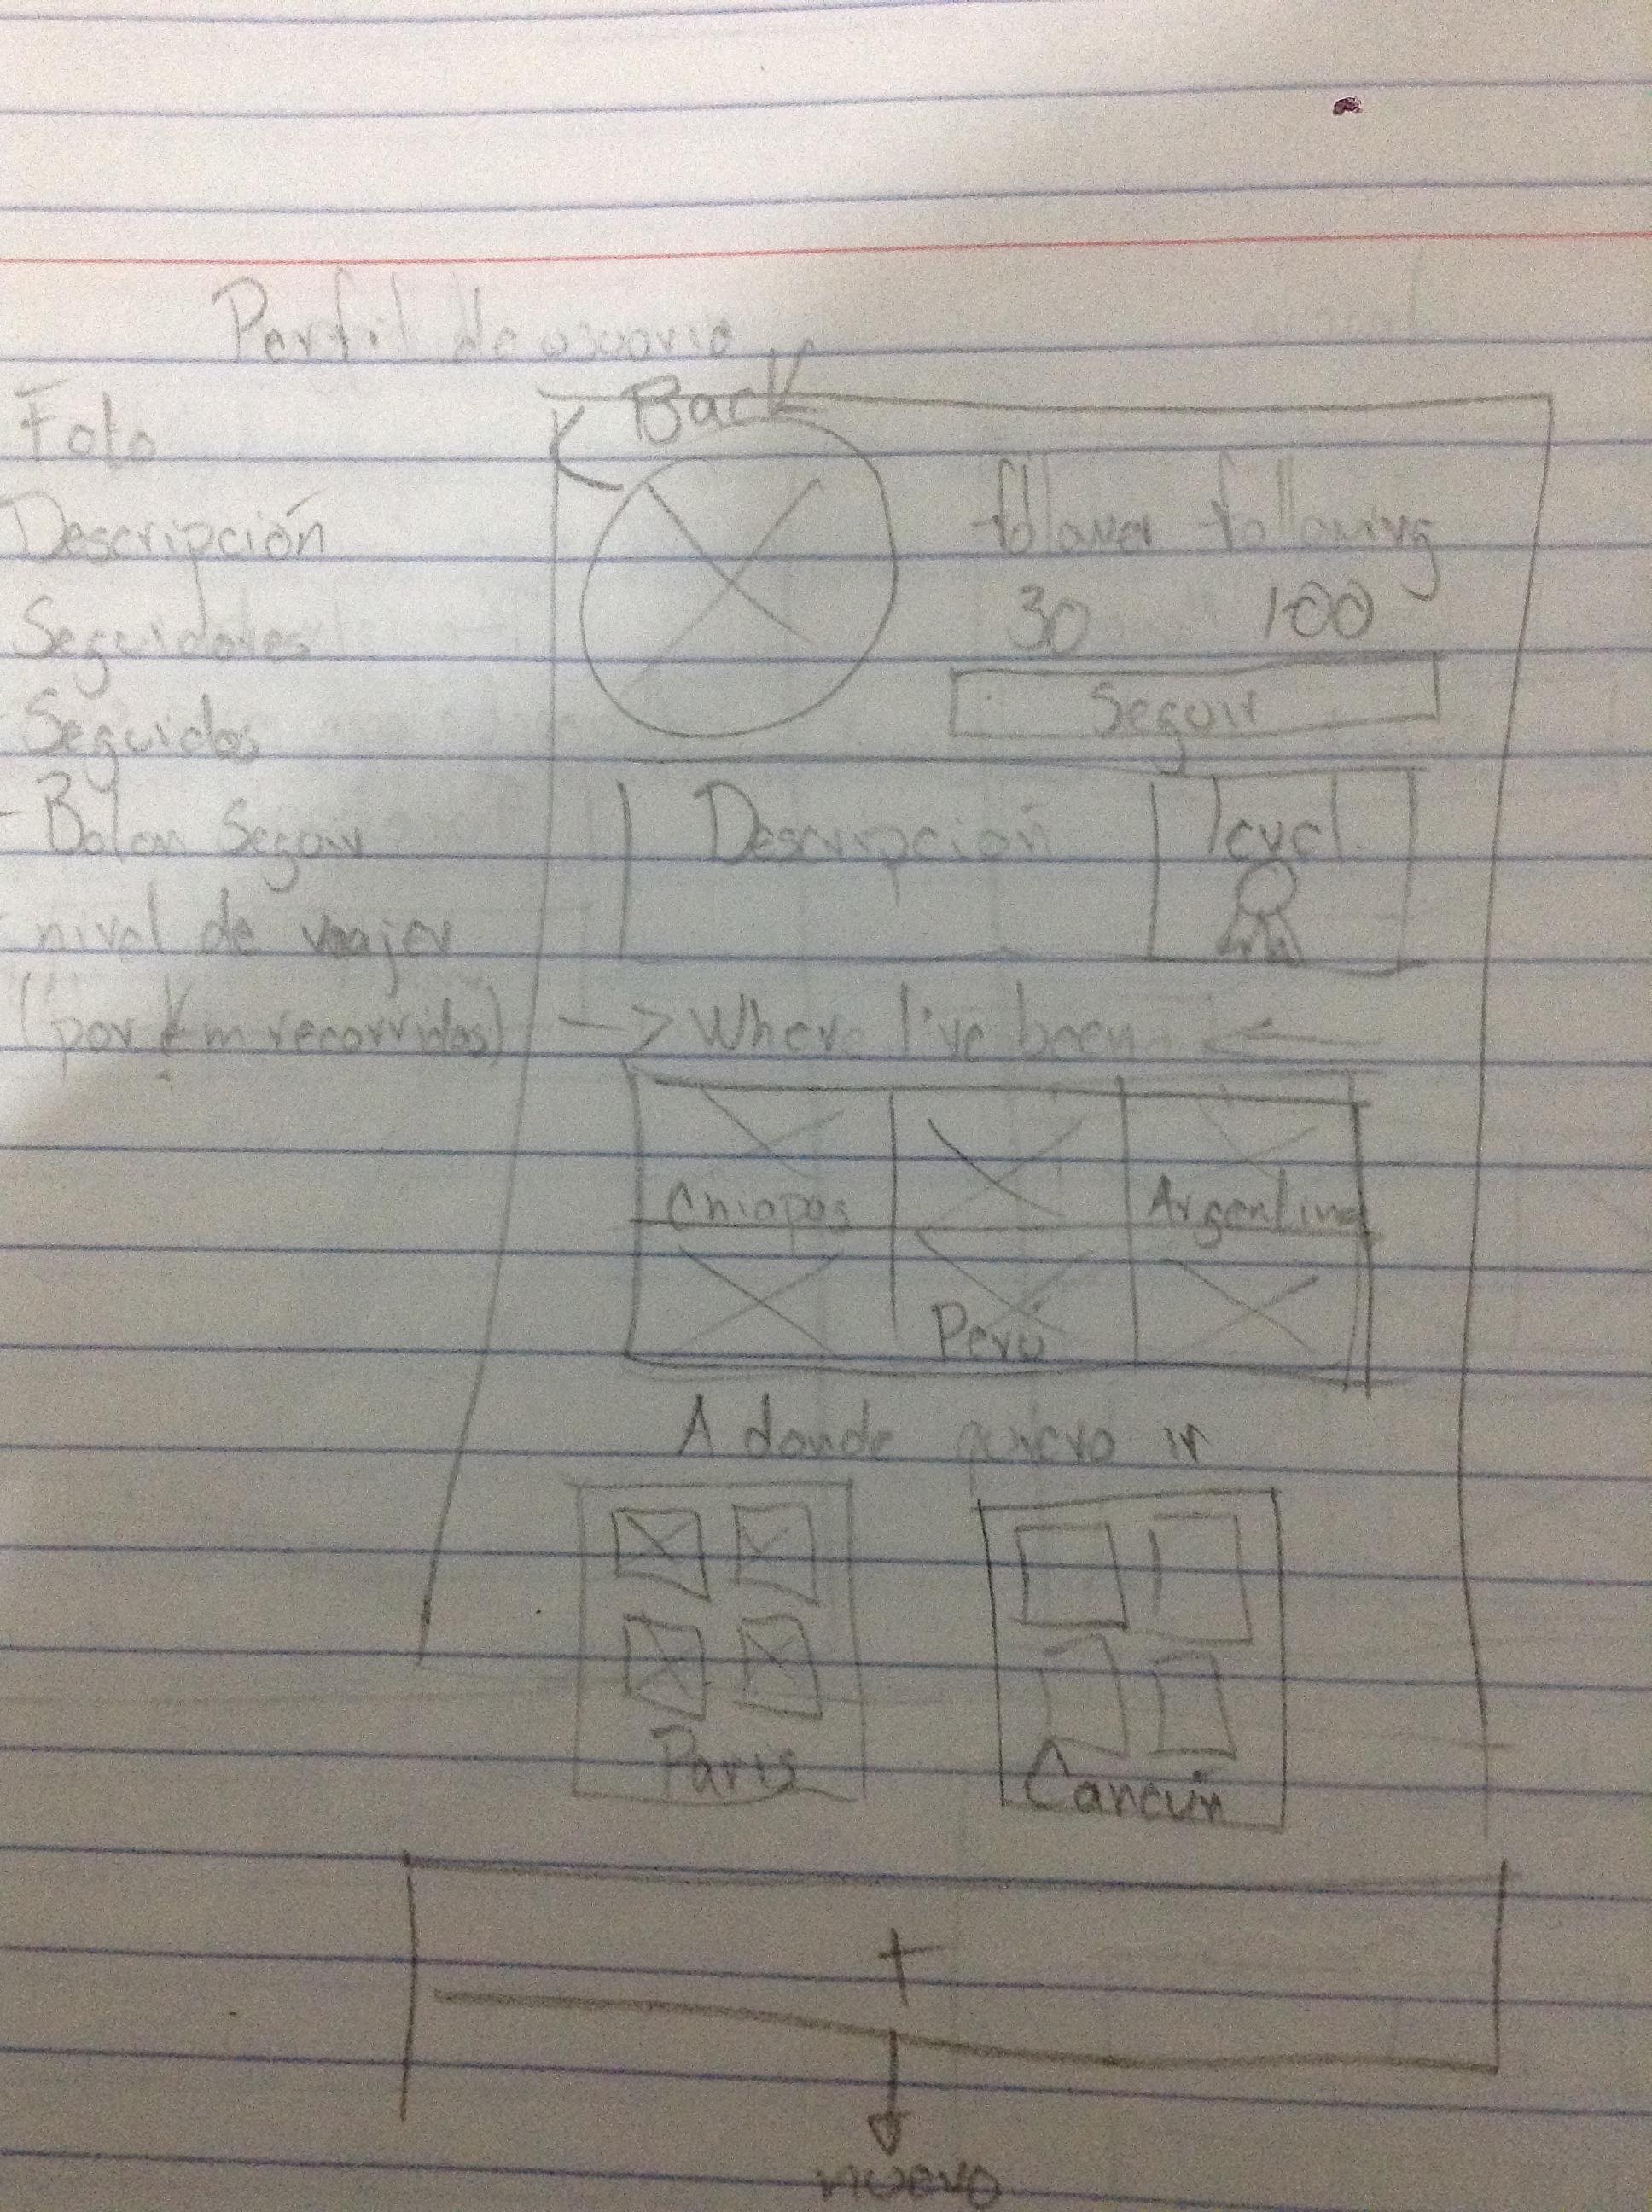 Perfil de usuario
Foto
Descripción
Seguidores
Seguidos
- Boton Seguir
nivel de viajer
(por km recorridos)
< Back
follower following
30 100
Seguir
Descripción
level
-> Where I've been <-
Chiapas
Argentina
Perú
A donde quiero ir
Paris
Cancún
+
nuevo